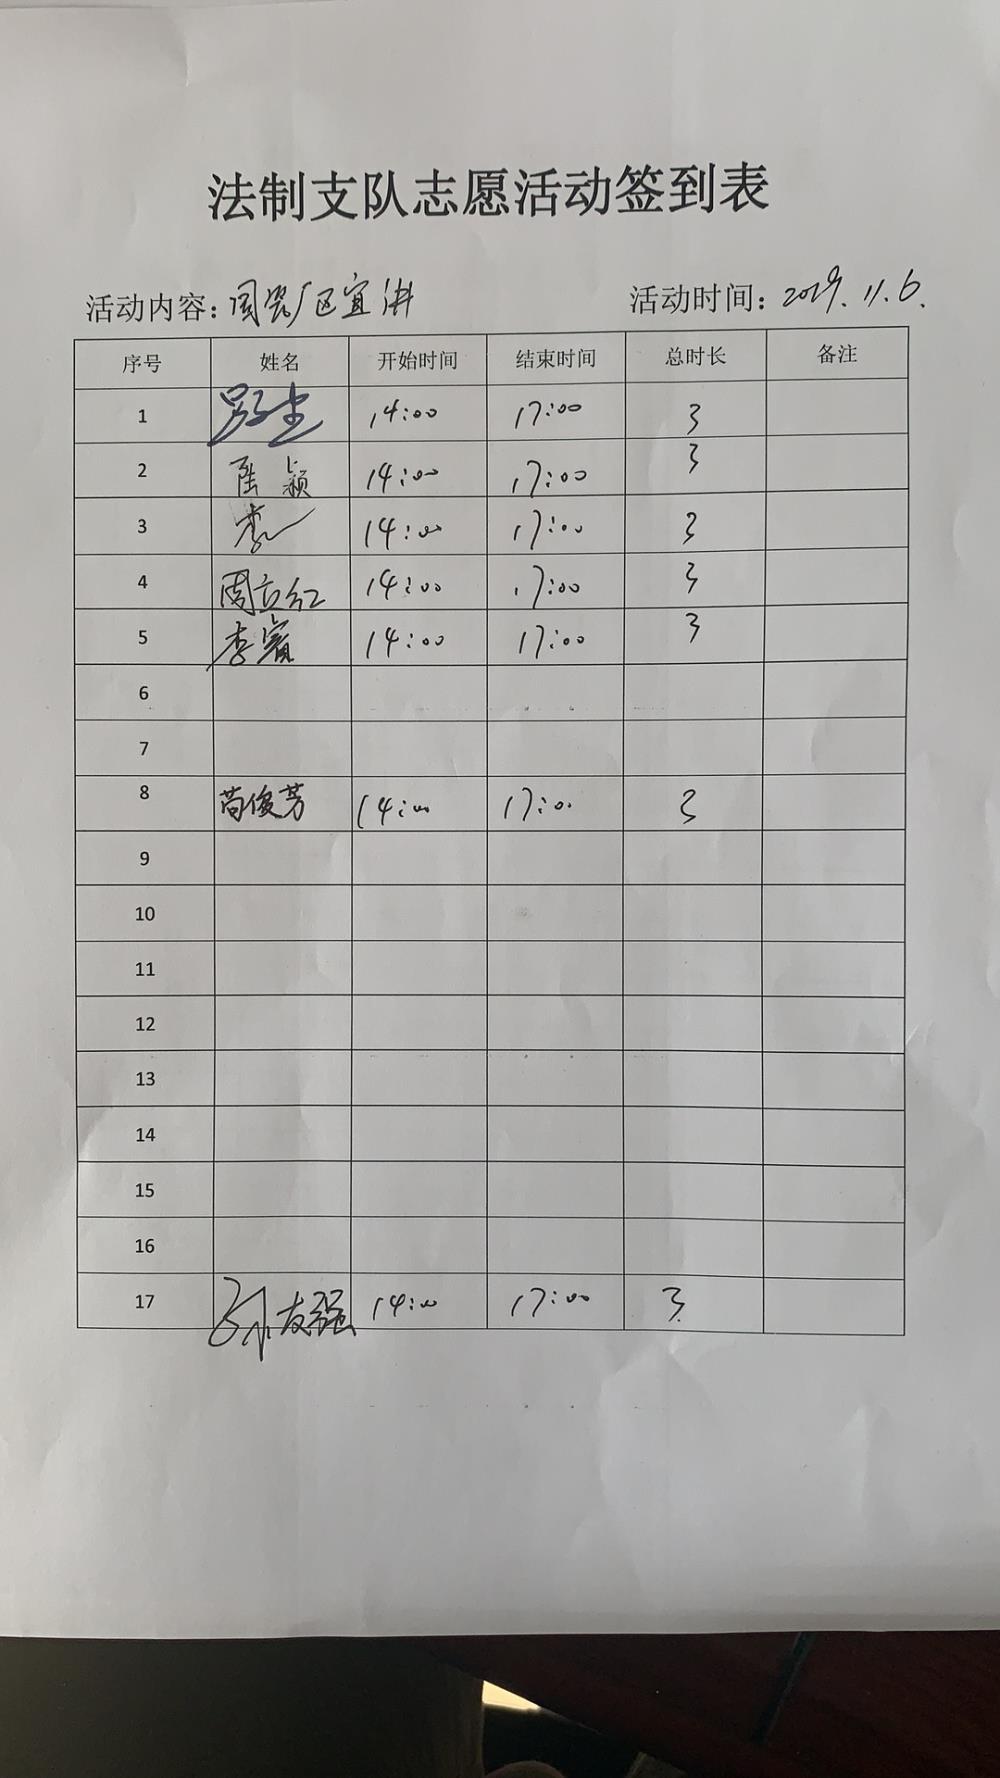 法制支队志愿活动签到表
活动内容: 园瓷厂区宣讲 活动时间: 2019.11.6.
序号 姓名 开始时间 结束时间 总时长 备注
1 14:00 17:00 3
2 陈颖 14:00 17:00 3
3 李 14:00 17:00 3
4 周立红 14:00 17:00 3
5 李宾 14:00 17:00 3
6
7
8 苟俊芳 14:00 17:00 3
9
10
11
12
13
14
15
16
17 孙友强 14:00 17:00 3